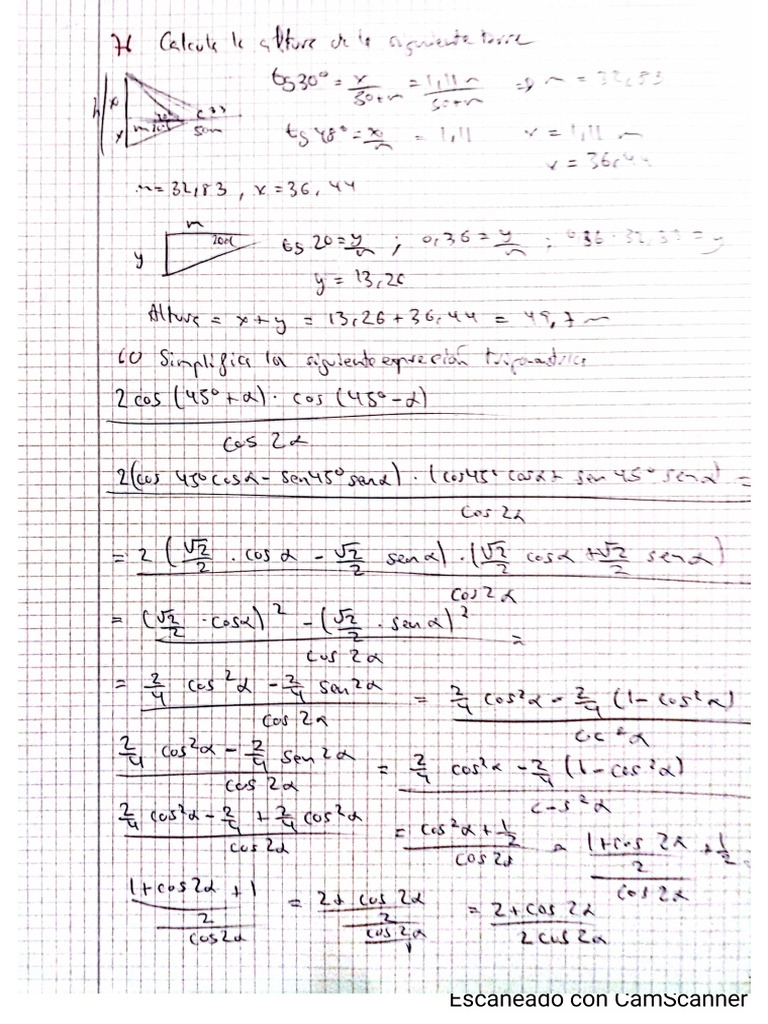 7) Calcula la altura de la siguiente torre
tg30° = x/50+m = 1,11m/50+m => m = 32,83
h x 30° 50m
m y
tg 48° = x/m = 1,11 x = 1,11 m
x = 36,44
m = 32,83, x = 36,44
m
y 20° tg 20 = y/m ; 0,36 = y/m ; = y
y = 13,26
Altura = x + y = 13,26 + 36,44 = 49,7 m
6) Simplifica la siguiente expresión trigonometrica
2 cos (45° + α) · cos (45° - α)
cos 2α
2(cos 45° cosα - sen45° senα) · (cos45° cosα + sen 45° senα) =
cos 2α
= 2 (√2/2 · cos α - √2/2 senα) · (√2/2 cosα + √2/2 senα)
cos2α
= (√2/2 · cosα)² - (√2/2 · senα)² =
cos 2α
= 2/4 cos²α - 2/4 sen²α = 2/4 cos²α - 2/4 (1 - cos²α)
cos 2α
2/4 cos²α - 2/4 sen²α = 2/4 cos²α - 2/4 (1 - cos²α)
cos 2α
2/4 cos²α - 2/4 + 2/4 cos²α = cos²α + 1/2 = 1+cos 2α/2 + 1/2
cos2α cos2α cos2α
1+cos2α + 1 = 2 + cos 2α = 2 + cos 2α
2 2 2 cos 2α
cos2α cos2α
Escaneado con CamScanner